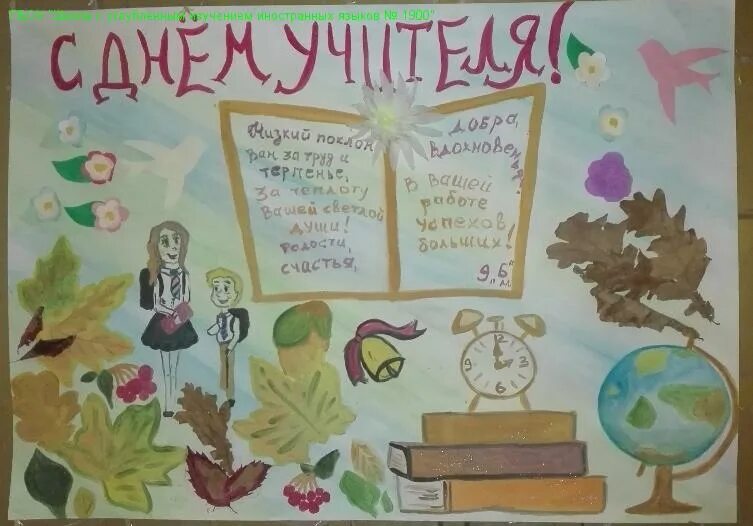 ГБОУ "Школа с углубленным изучением иностранных языков № 1900"
С ДНЁМ УЧИТЕЛЯ!
Низкий поклон
Вам за труд и
терпенье,
За теплоту
Вашей светлой
души!
Радости,
счастья,
Добра,
Вдохновенья
В Вашей
работе
успехов
больших!
9 „Б“
кл.
12
3
6
9